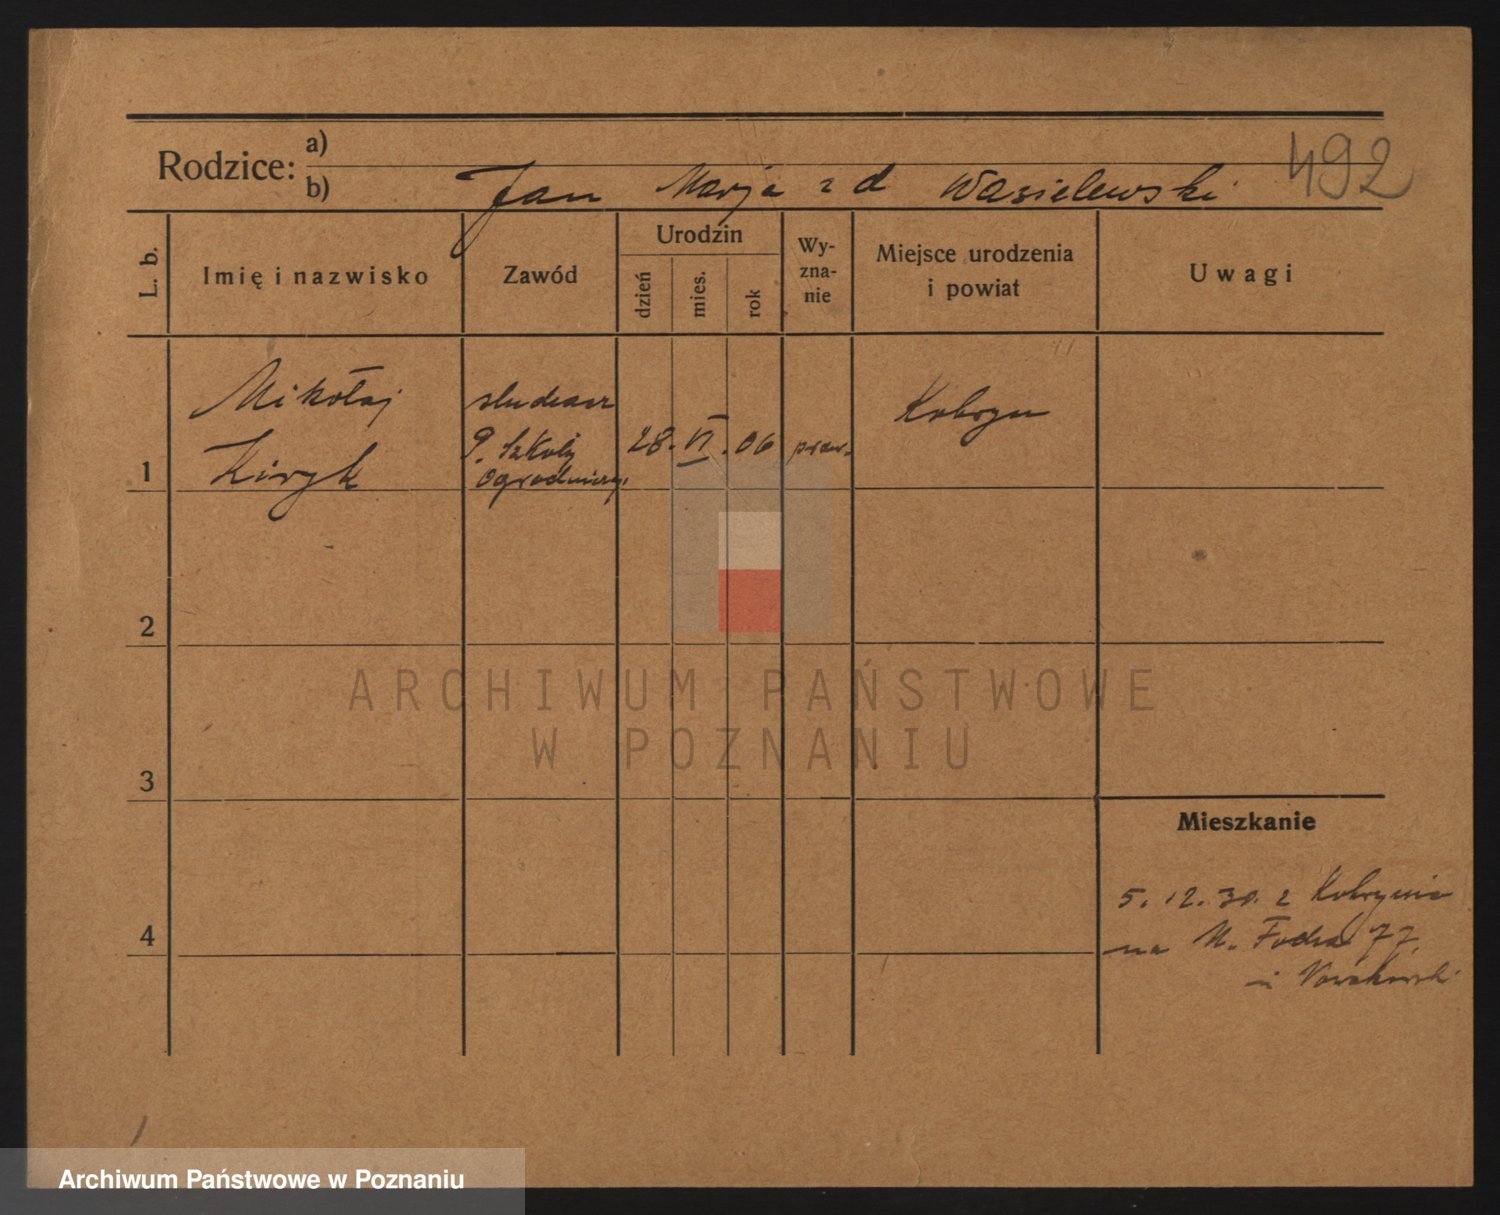 492
Rodzice: a)
b) Jan Marja z d Wasielewski
L. b.
Imię i nazwisko
Zawód
Urodzin
dzień
mies.
rok
Wy-
zna-
nie
Miejsce urodzenia
i powiat
Uwagi
1
Mikołaj
Kiryk
słuchacz
P. Szkoły
Ogrodniczej
28. VI. 06
praw.
Kobryn
2
3
4
Mieszkanie
5. 12. 30. z Kobrynia
na M. Focha 77.
Nowakowski
ARCHIWUM PAŃSTWOWE
W POZNANIU
Archiwum Państwowe w Poznaniu